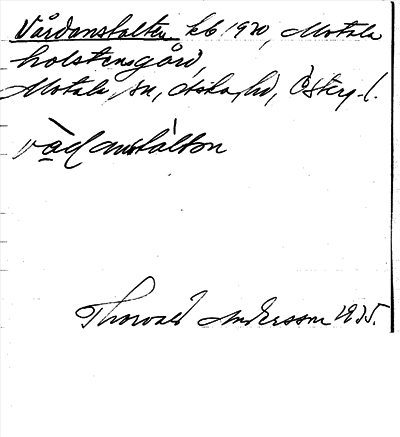 Vårdanstalten kb 1920, Motala
holstensgård,
Motala sn, Aska hd, Östergl.
vàḍanstàlton
Thorvald Andersson 1935.